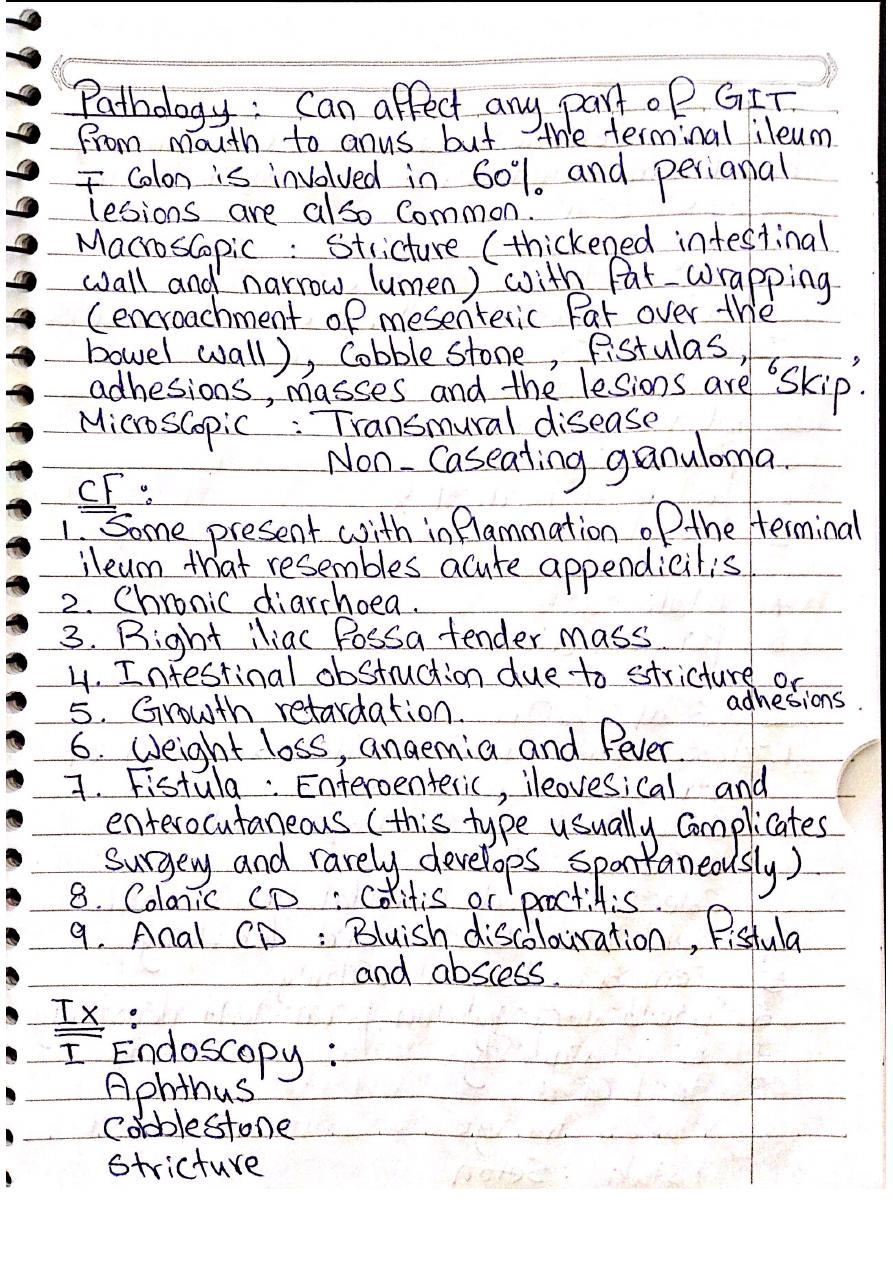 Pathology : Can affect any part of GIT
from mouth to anus but the terminal ileum
∓ Colon is involved in 60% and perianal
lesions are also common.
Macroscopic : Stricture (thickened intestinal
wall and narrow lumen) with fat-wrapping
(encroachment of mesenteric fat over the
bowel wall), Cobble stone, fistulas,
adhesions, masses and the lesions are 'Skip'.
Microscopic : Transmural disease
Non-Caseating granuloma.
CF :
1. Some present with inflammation of the terminal
ileum that resembles acute appendicitis.
2. Chronic diarrhoea.
3. Right iliac fossa tender mass.
4. Intestinal obstruction due to stricture or
adhesions.
5. Growth retardation.
6. Weight loss, anaemia and fever.
7. Fistula : Enteroenteric, ileovesical and
enterocutaneous (this type usually Complicates
surgery and rarely develops spontaneously)
8. Colonic CD : Colitis or proctitis.
9. Anal CD : Bluish discolouration, fistula
and abscess.
Ix :
I Endoscopy :
Aphthus
Cobblestone
Stricture